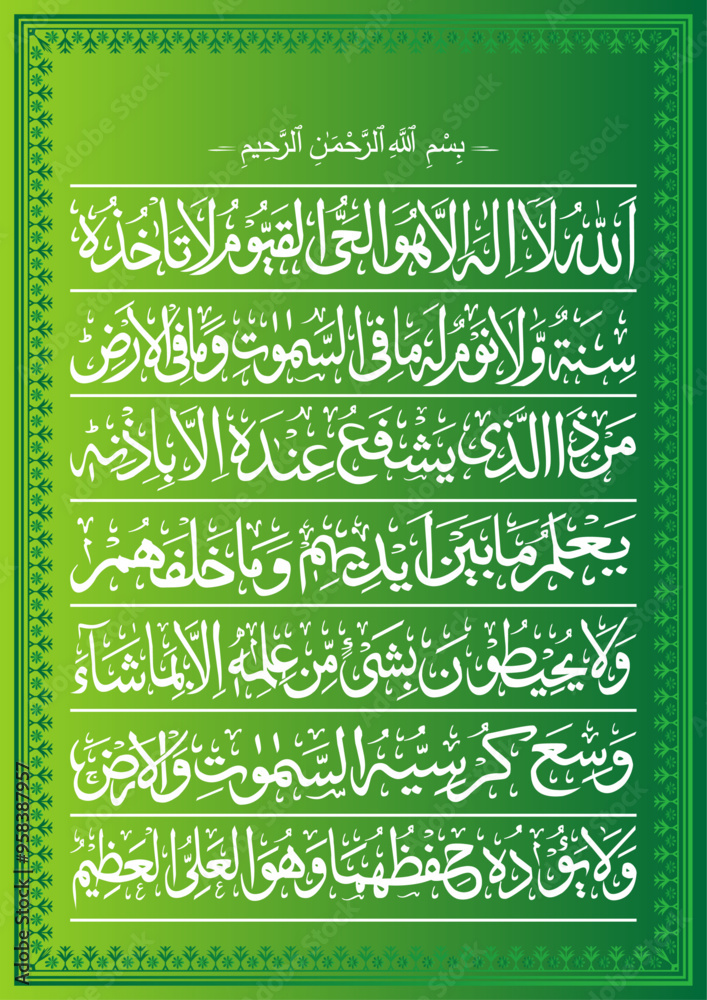 بِسْمِ ٱللَّهِ ٱلرَّحْمَـٰنِ ٱلرَّحِيمِ
اَللّٰهُ لَا اِلٰهَ اِلَّا هُوَ الْحَىُّ الْقَيُّوْمُ لَا تَاْخُذُهٗ
سِنَةٌ وَّلَا نَوْمٌ لَهٗ مَا فِى السَّمٰوٰتِ وَمَا فِى الْاَرْضِ
مَنْ ذَا الَّذِىْ يَشْفَعُ عِنْدَهٗ اِلَّا بِاِذْنِهٖ
يَعْلَمُ مَا بَيْنَ اَيْدِيْهِمْ وَمَا خَلْفَهُمْ
وَلَا يُحِيْطُوْنَ بِشَىْءٍ مِّنْ عِلْمِهٖ اِلَّا بِمَا شَآءَ
وَسِعَ كُرْسِيُّهُ السَّمٰوٰتِ وَالْاَرْضَ
وَلَا يَؤُدُهٗ حِفْظُهُمَا وَهُوَ الْعَلِىُّ الْعَظِيْمُ
Adobe Stock | #958387957